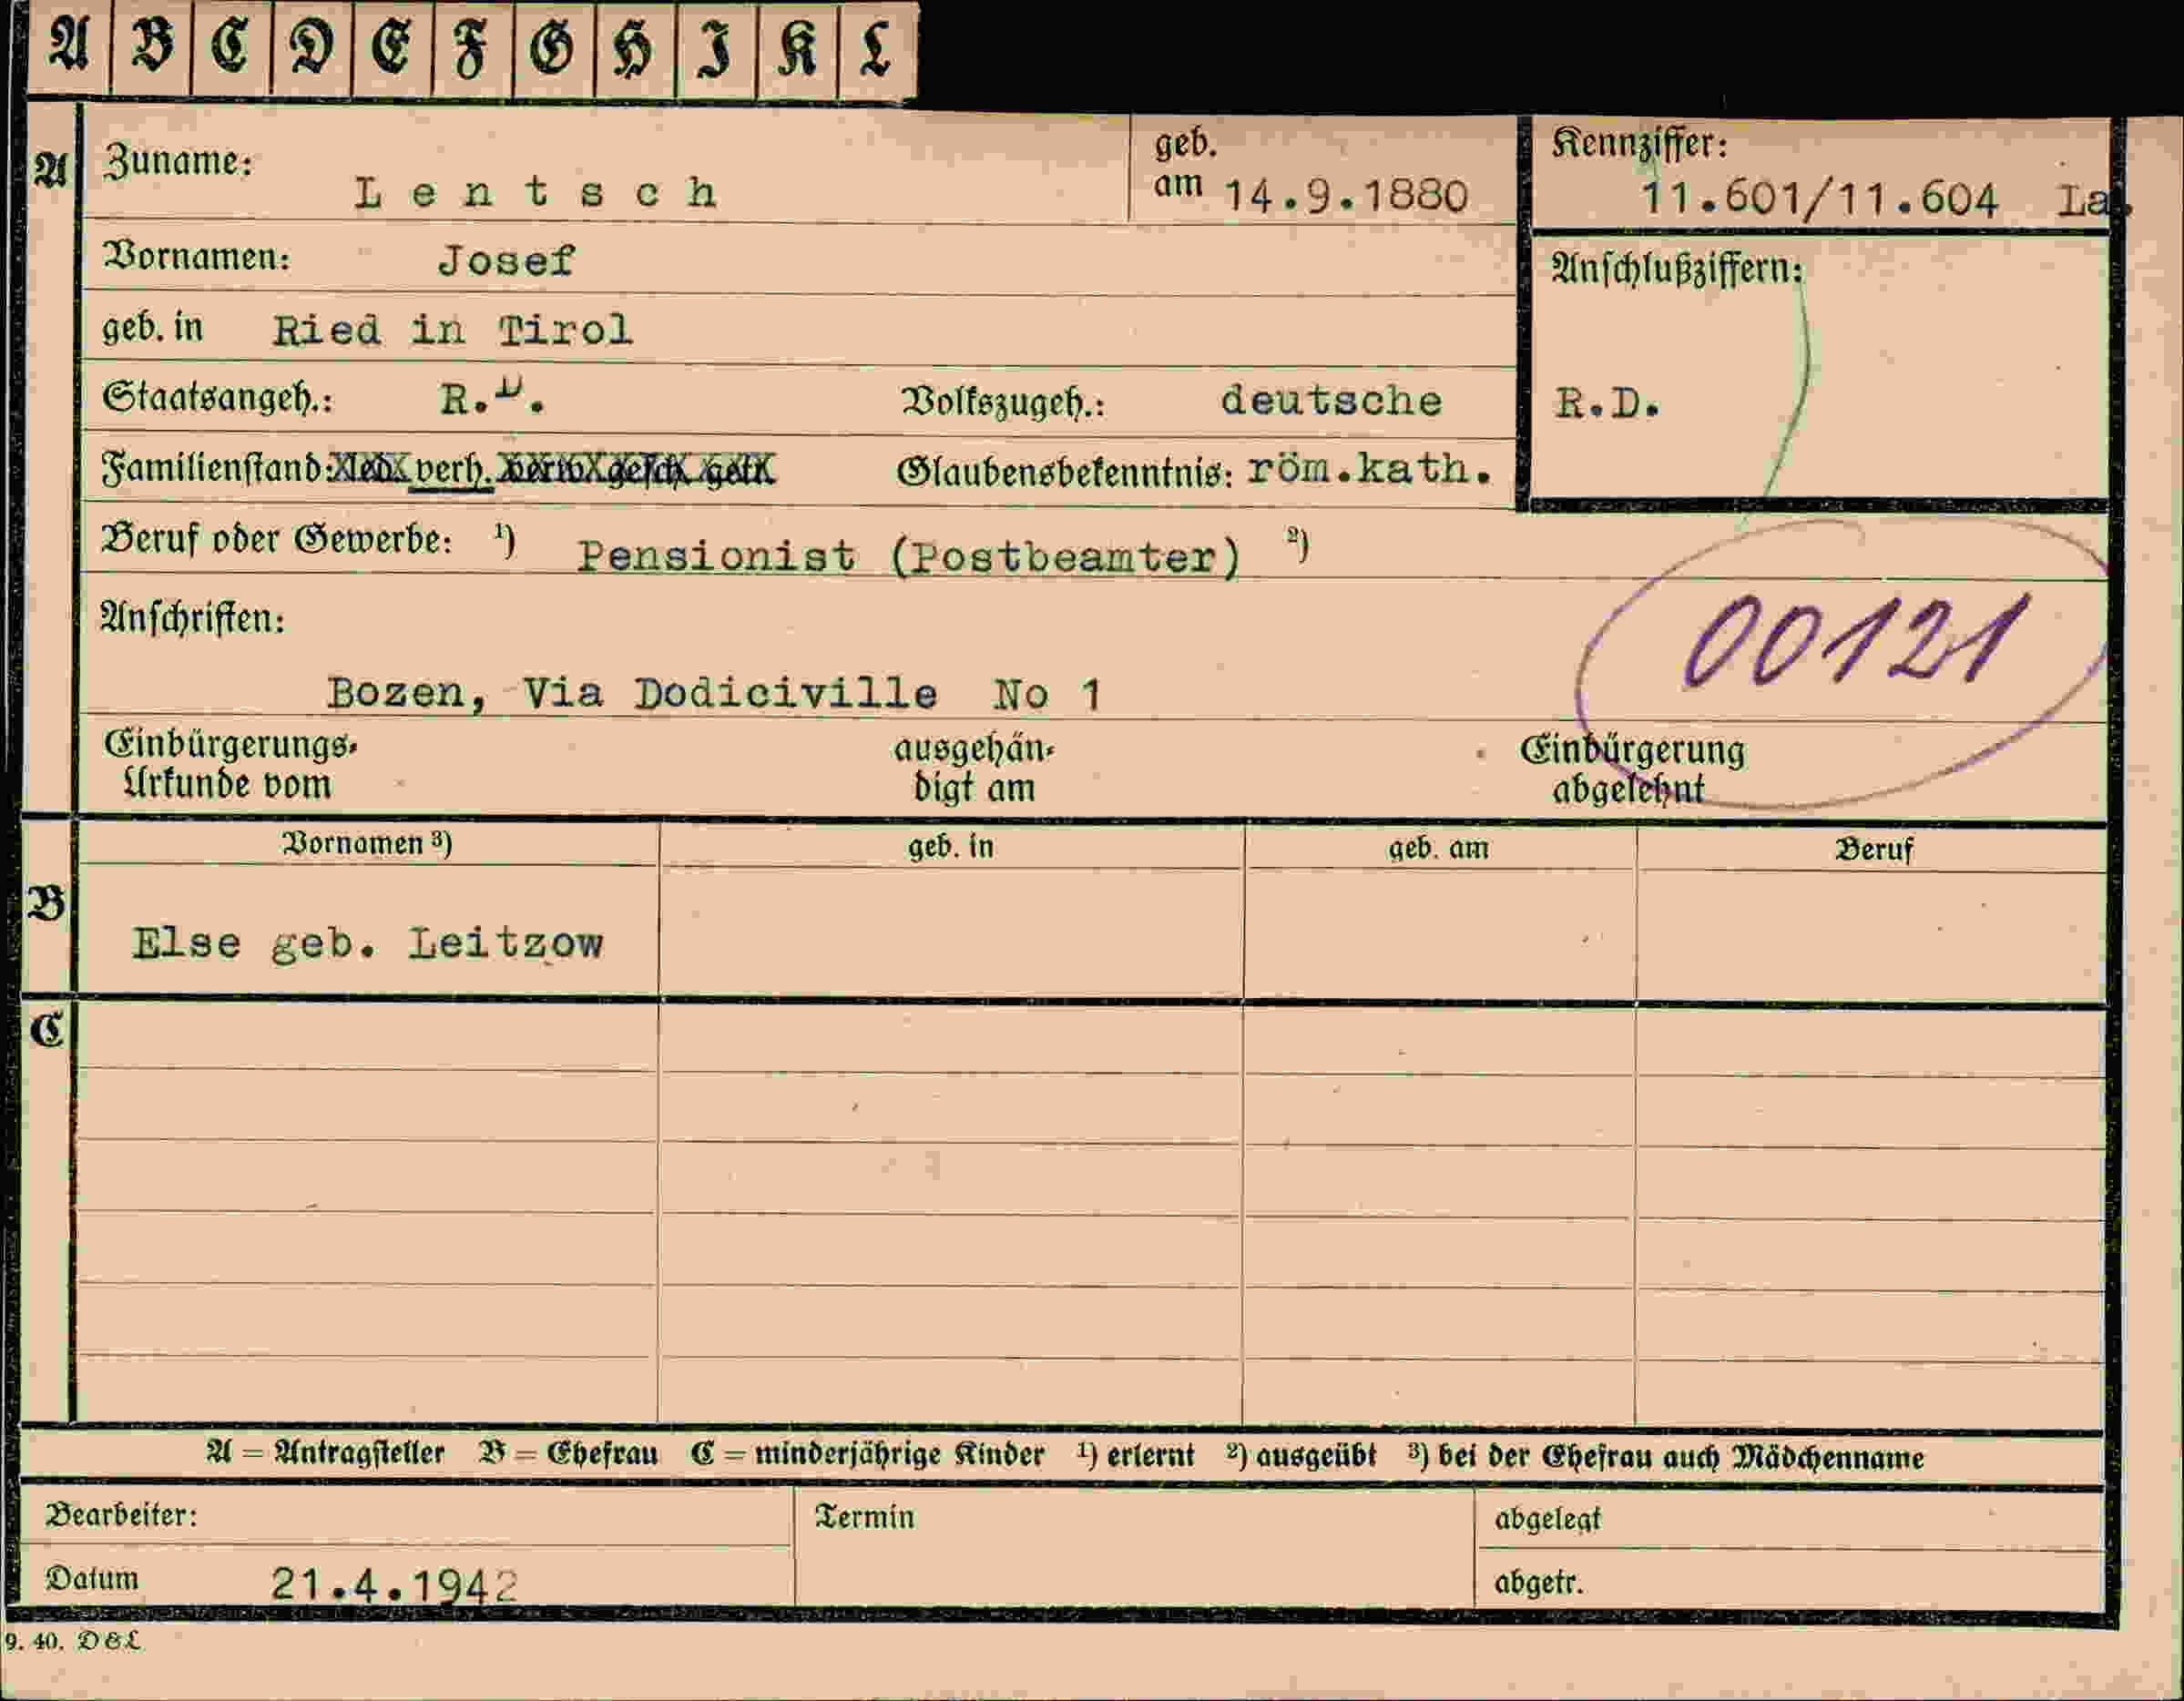 A B C D E F G H I K L
A Zuname: Lentsch geb. am 14.9.1880 Kennziffer: 11.601/11.604 La.
Vornamen: Josef Anschlußziffern:
geb. in Ried in Tirol
Staatsangeh.: R.D. Volkszugeh.: deutsche R.D.
Familienstand: led. verh. verw. gesch. getr. Glaubensbekenntnis: röm.kath.
Beruf oder Gewerbe: ¹) Pensionist (Postbeamter) ²)
Anschriften: 00121
Bozen, Via Dodiciville No 1
Einbürgerungs- ausgehän- Einbürgerung
Urkunde vom digt am abgelehnt
Vornamen ³) geb. in geb. am Beruf
B
Else geb. Leitzow
C
A = Antragsteller B = Ehefrau C = minderjährige Kinder ¹) erlernt ²) ausgeübt ³) bei der Ehefrau auch Mädchenname
Bearbeiter: Termin abgelegt
Datum 21.4.1942 abgetr.
9. 40. D&L